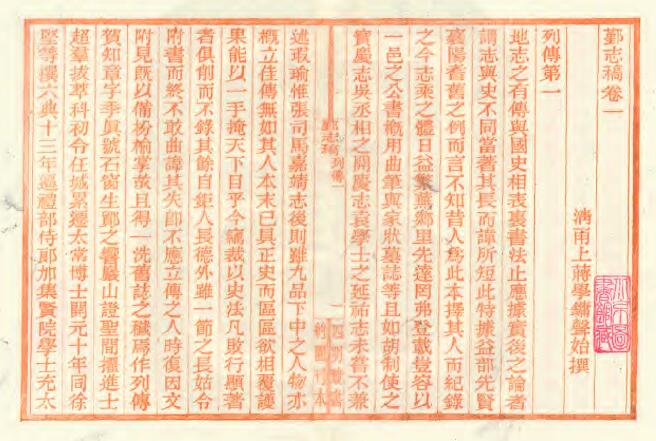 鄞志稿卷一
清甬上蔣學鏞聲始撰
列傳第一
地志之有傳與國史相表裏書法止應據實後之論者
謂志與史不同當著其長而諱所短此特據益部先賢
襄陽耆舊之例而言不知昔人爲此本擇其人而紀錄
之今志乘之體日益繁蕪鄉里先達罔弗登載豈容以
一邑之公書槪用曲筆與家狀墓誌等且如胡制使之
寶慶志吳丞相之開慶志袁學士之延祐志未嘗不兼
述瑕瑜惟張司馬嘉靖志後則雖九品下中之人物亦
槪立佳傳無如其人本末已具正史而區區欲相覆護
果能以一手掩天下目乎今竊裁以史法凡敗行顯著
者俱削而不錄其餘自鉅人長德外雖一節之長姑令
附書而終不敢曲諱其失卽不應立傳之人時復因文
附見旣以備枌楡掌故且得一洗舊誌之穢焉作列傳
賀知章字季眞號石窗生鄞之響巖山證聖間擢進士
超羣拔萃科初令任城累遷太常博士開元十年同徐
堅等撰六典十三年遷禮部侍郞加集賢院學士充太
鄞志稿
列傳一
一
四明叢書
約園刊本